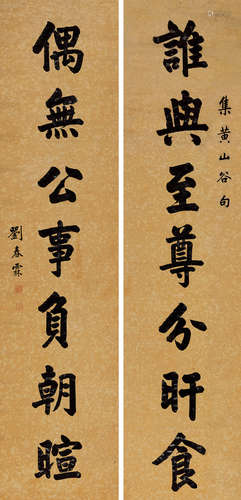 誰與至尊分旰食
集黃山谷句
偶無公事負朝暄
劉春霖